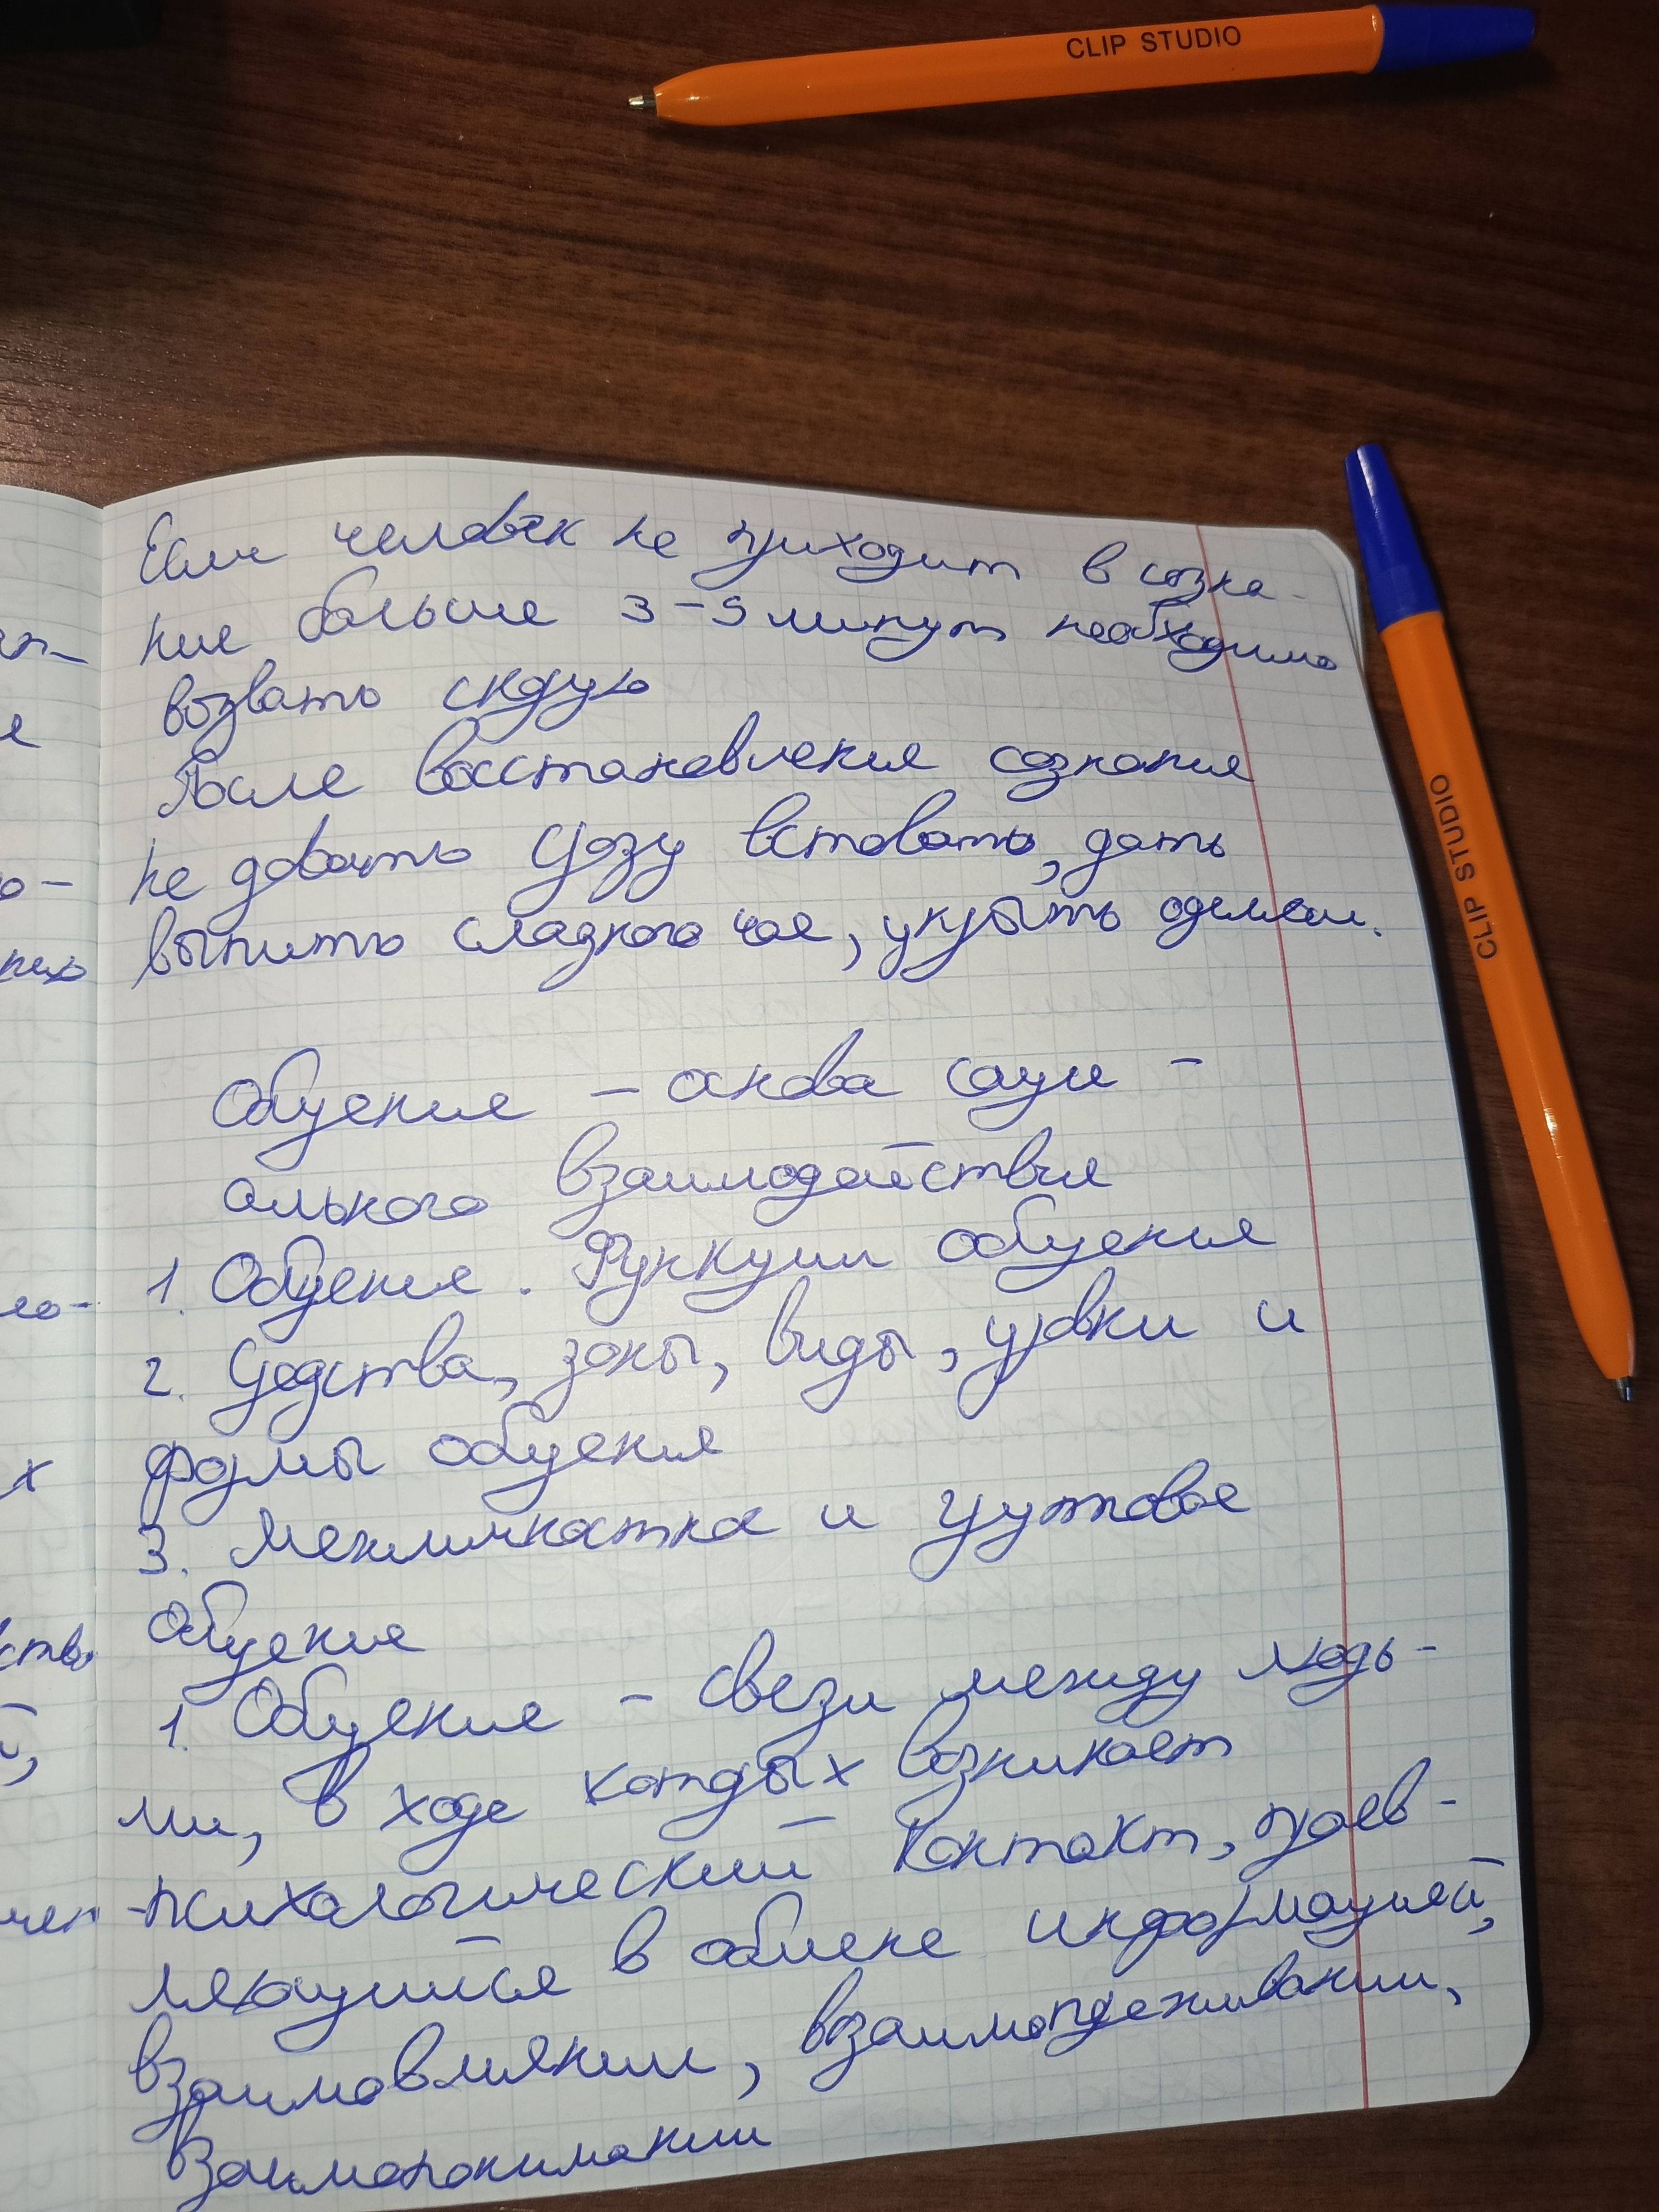 CLIP STUDIO
CLIP STUDIO
Если человек не приходит в созна-
ние больше 3-5 минут необходимо
возвать скорую
После восстановления сознания
не давать сразу вставать, дать
выпить сладкого чая, укрыть одеялом.
Общение - основа соци-
ального взаимодействия
1. Общение. Функции общения
2. Средства, зоны, виды, уровки и
формы общения
3. Межличностное и групповое
общение
1. Общение - связи между людь-
ми, в ходе которых возникает
психологический контакт, прояв-
ляющийся в обмене информацией,
взаимовлиянии, взаимопреживании,
взаимопонимании